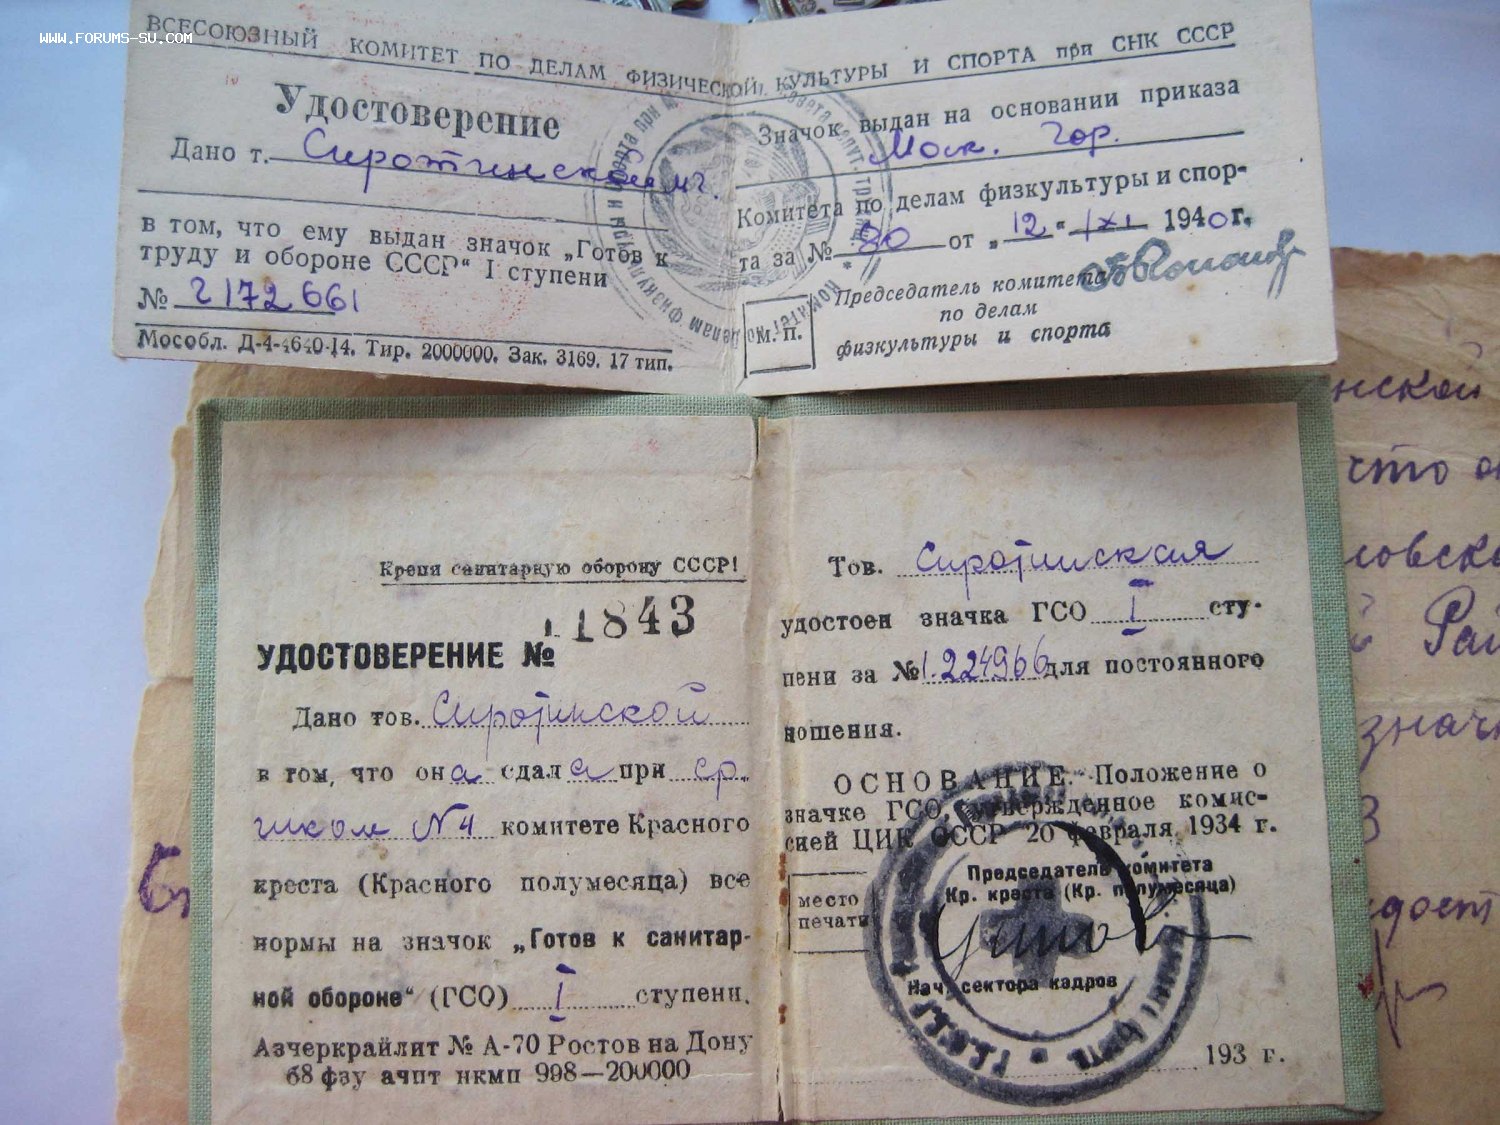 WWW.FORUMS-SU.COM
ВСЕСОЮЗНЫЙ КОМИТЕТ ПО ДЕЛАМ ФИЗИЧЕСКОЙ КУЛЬТУРЫ И СПОРТА при СНК СССР
Удостоверение
Дано т. Сиротинской
в том, что ему выдан значок „Готов к
труду и обороне СССР“ I ступени
№ 2172661
Мособл. Д-4-4640-14. Тир. 2000000. Зак. 3169. 17 тип.
Значок выдан на основании приказа
Моск. Гор.
Комитета по делам физкультуры и спор-
та за № 80 от „12“ IXI 1940 г.
Председатель комитета
по делам
физкультуры и спорта
М. П.
Крепи санитарную оборону СССР!
11843
УДОСТОВЕРЕНИЕ №
Дано тов. Сиротинской
в том, что она сдала при ср.
школ №4 комитете Красного
креста (Красного полумесяца) все
нормы на значок „Готов к санитар-
ной обороне“ (ГСО) I ступени.
Азчеркрайлит № А-70 Ростов на Дону
68 фзу ачпт нкмп 998—200000
Тов. Сиротинская
удостоен значка ГСО I сту-
пени за № 1.224966 для постоянного
ношения.
ОСНОВАНИЕ: Положение о
значке ГСО, утвержденное комис-
сией ЦИК СССР 20 февраля 1934 г.
Председатель комитета
Кр. креста (Кр. полумесяца)
место
печати
Нач. сектора кадров
193 г.
нской
что
Рай
знач